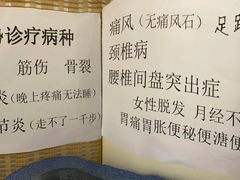 诊疗病种
筋伤 骨裂
炎(晚上疼痛无法睡)
节炎(走不了一千步)
痛风(无痛风石) 足
颈椎病
腰椎间盘突出症
女性脱发 月经不
胃痛胃胀便秘便溏便